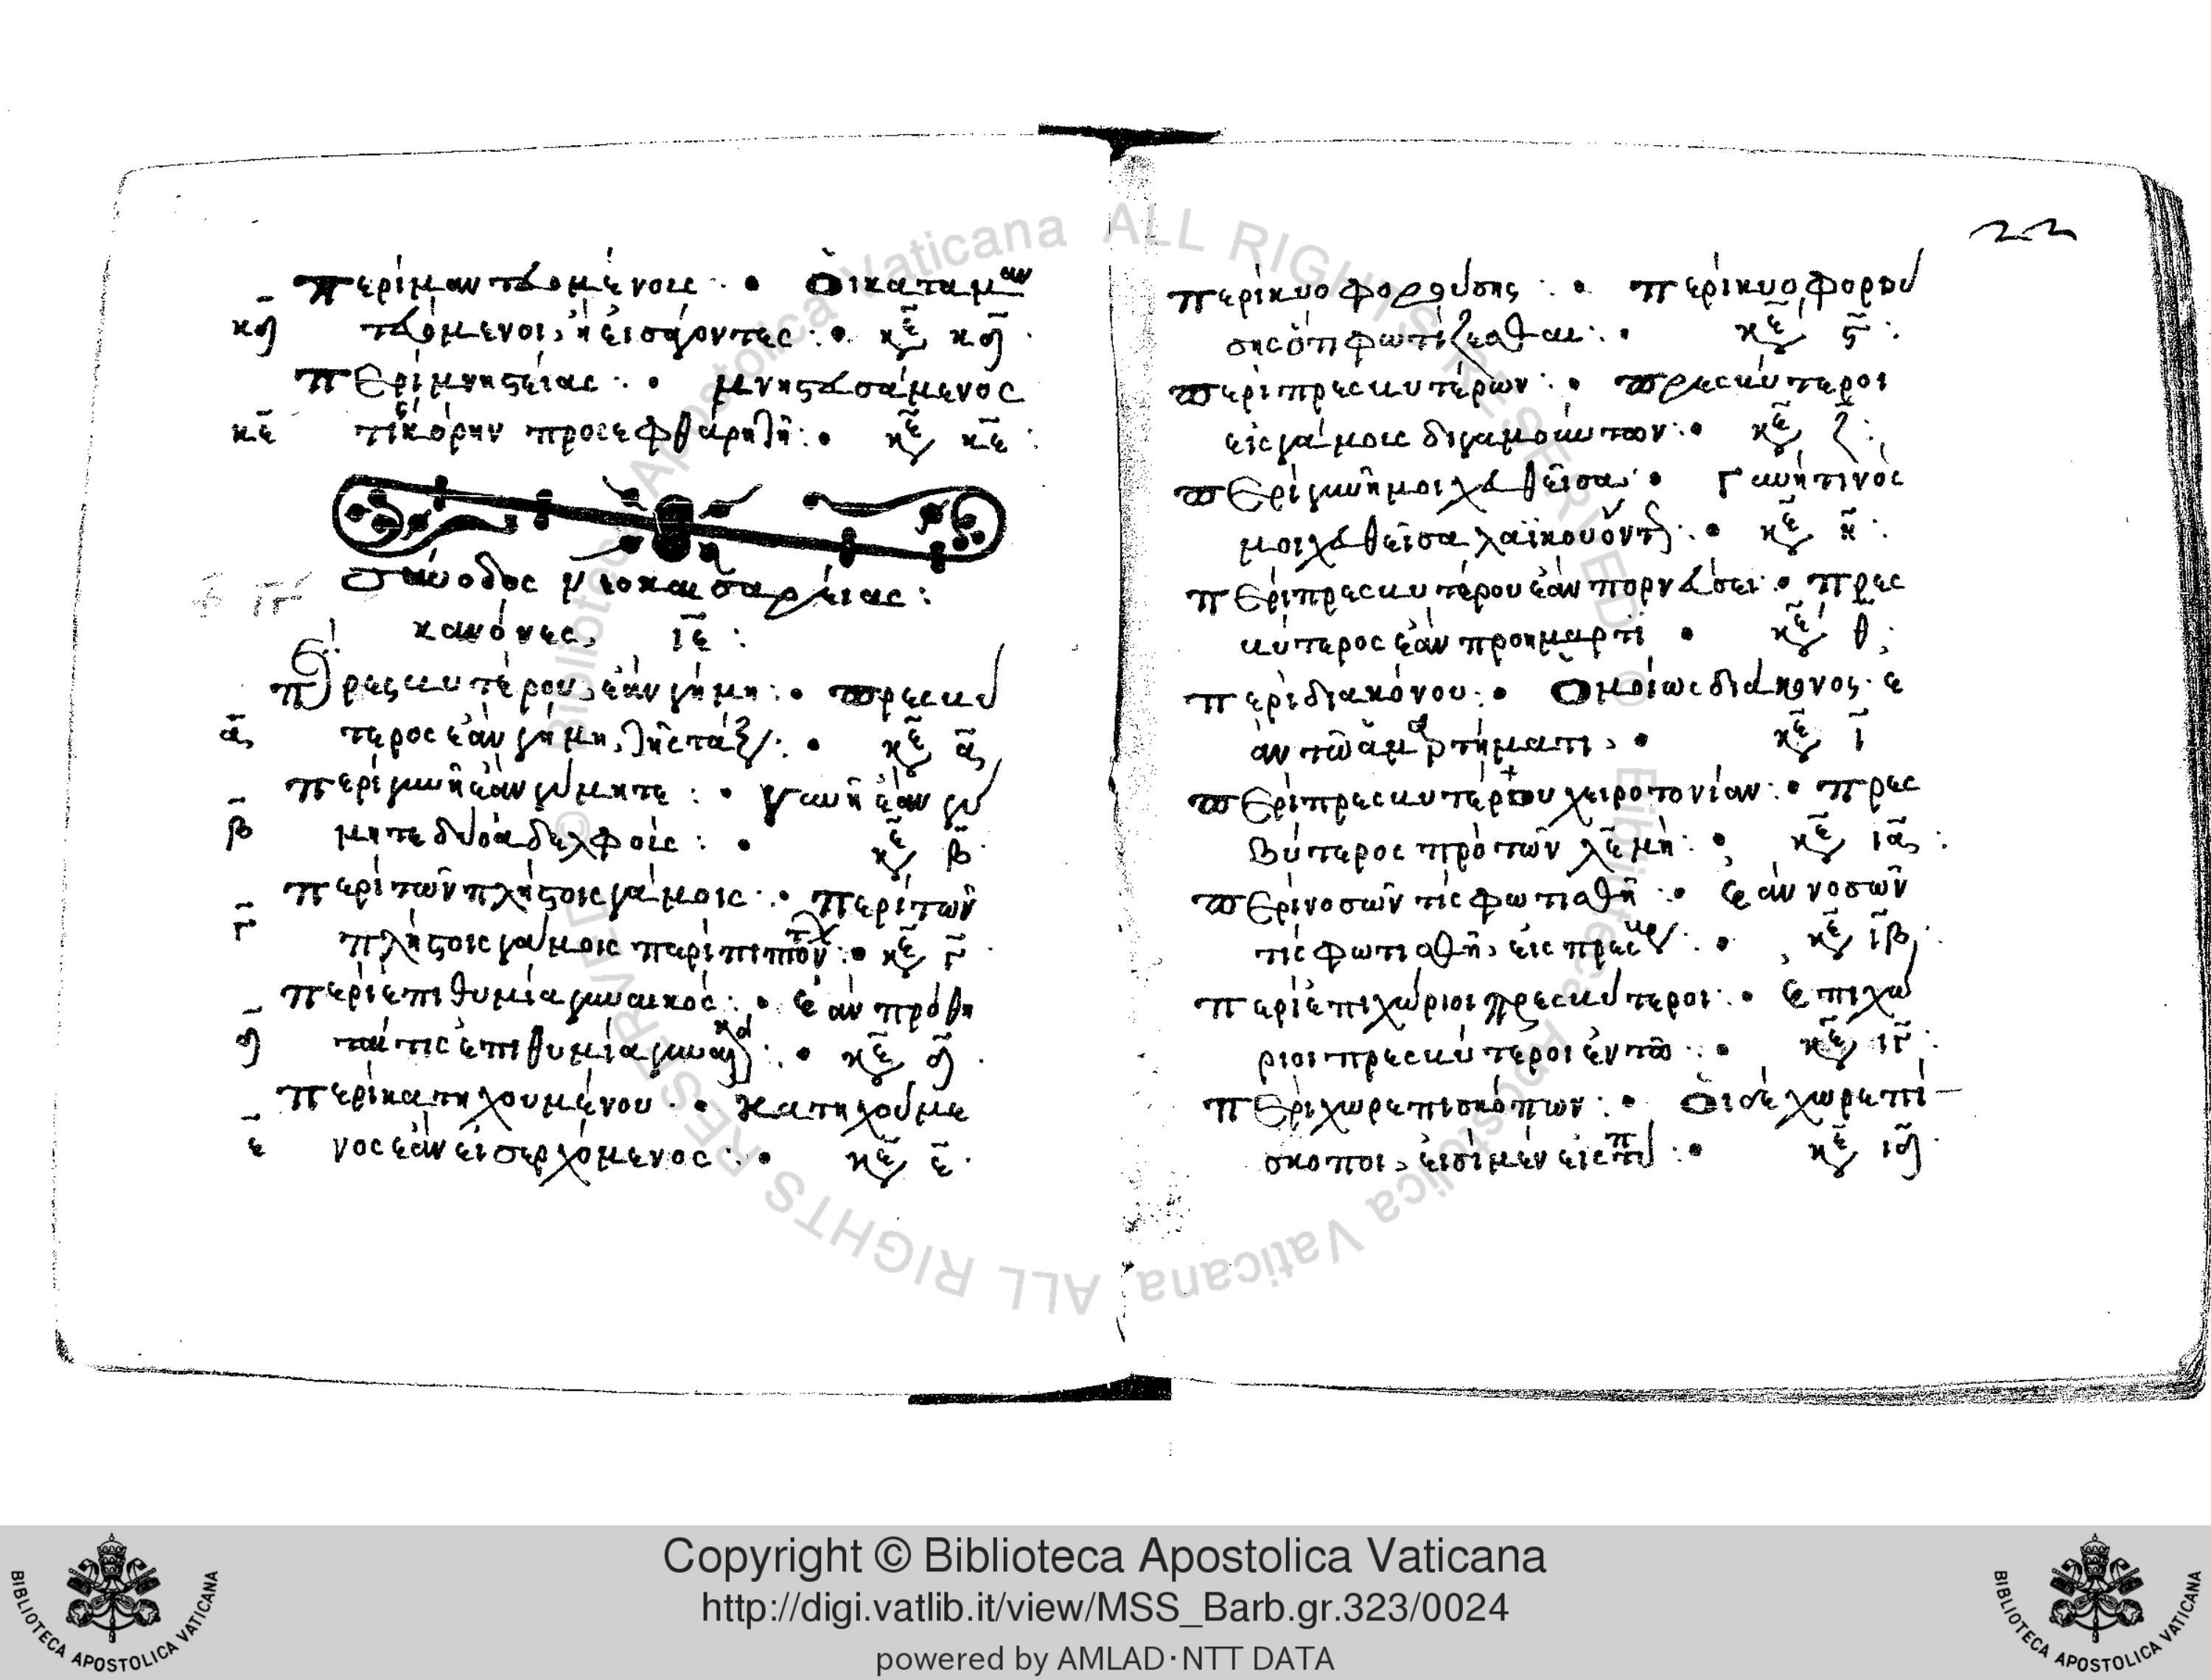 περὶ μαντευομένοις : • Οἱ καταμαν
κδ τευόμενοι, ἢ εἰσάγοντες : • κε κδ
περὶ μνηστείας : • μνηστευσάμενος
κε τὶς κόρην προσεφθάρη τῆ : • κε κε :
σύνοδος νεοκαισαρείας :
κανόνες, ιε :
πρεσβυτέρου, ἐὰν γήμη : • πρεσβύ
α τερος ἐὰν γήμη, τῆς τάξ : • κε α
περὶ γυνὴ ἐὰν γύμητε : • γυνὴ ἐὰν γύ
β μητε δύο ἀδελφοῖς : • κε β
περὶ τῶν πλήστοις γάμοις : • περὶ τῶν
γ πλήστοις γάμοις περιπιπτόν : • κε γ
περὶ ἐπιθυμία γυναικός : • ἐὰν πρόθη
δ ταί τις ἐπιθυμία γυναικ : • κε δ
περὶ κατηχουμένου • κατηχούμε
ε νος ἐὰν εἰσερχόμενος : • κε ε
22
περὶ κυοφορούσης : • περὶ κυοφορού
σης ὅτι φωτίζεσθαι : • κε ς :
περὶ πρεσβυτέρων : • πρεσβύτεροι
εἰς γάμοις διγαμούντων : • κε ζ :
περὶ γυνὴ μοιχευθεῖσα • γυνή τινὸς
μοιχευθεῖσα λαϊκοῦ ὄντ : • κε η :
περὶ πρεσβυτέρου ἐὰν πορνεύσει : • πρεσ
βύτερος ἐὰν προημαρτί • κε θ :
περὶ διακόνου : • Ὁμοίως διάκονος ἐ
ὰν τῶ ἁμαρτήματι, • κε ι
περὶ πρεσβυτέρου χειροτονίαν : • πρες
βύτερος πρὸ τῶν λ ε μὴ : • κε ια :
περὶ νοσῶν τὶς φωτισθῆ : • ἐὰν νοσῶν
τὶς φωτισθῆ, εἰς πρεσ : • κε ιβ :
περὶ ἐπιχώριοι πρεσβύτεροι : • ἐπιχώ
ριοι πρεσβύτεροι ἐν τῶ : • κε ιγ :
περὶ χωρεπισκόπων : • Οἱ δὲ χωρεπί
σκοποι, εἰσὶ μὲν εἰς τύπ : • κε ιδ
Copyright © Biblioteca Apostolica Vaticana
http://digi.vatlib.it/view/MSS_Barb.gr.323/0024
powered by AMLAD·NTT DATA
BIBLIOTECA APOSTOLICA VATICANA
BIBLIOTECA APOSTOLICA VATICANA